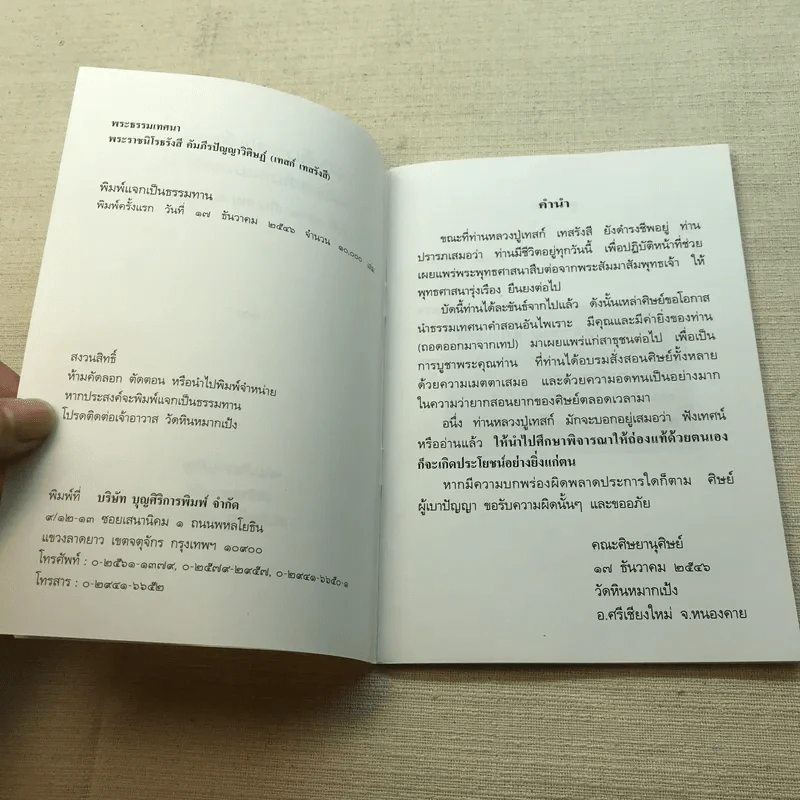 พระธรรมเทศนา
พระราชนิโรธรังสี คัมภีรปัญญาวิศิษฏ์ (เทสก์ เทสรังสี)
พิมพ์แจกเป็นธรรมทาน
พิมพ์ครั้งแรก วันที่ ๑๗ ธันวาคม ๒๕๔๖ จำนวน ๑๐,๐๐๐ เล่ม
สงวนสิทธิ์
ห้ามคัดลอก ตัดตอน หรือนำไปพิมพ์จำหน่าย
หากประสงค์จะพิมพ์แจกเป็นธรรมทาน
โปรดติดต่อเจ้าอาวาส วัดหินหมากเป้ง
พิมพ์ที่ บริษัท บุญศิริการพิมพ์ จำกัด
๙/๑๒-๑๓ ซอยเสนานิคม ๑ ถนนพหลโยธิน
แขวงลาดยาว เขตจตุจักร กรุงเทพฯ ๑๐๙๐๐
โทรศัพท์ : ๐-๒๕๖๑-๑๓๗๙, ๐-๒๕๗๙-๒๙๕๗, ๐-๒๙๔๑-๖๖๕๐-๑
โทรสาร : ๐-๒๙๔๑-๖๖๕๒
คำนำ
ขณะที่ท่านหลวงปู่เทสก์ เทสรังสี ยังดำรงชีพอยู่ ท่าน
ปรารภเสมอว่า ท่านมีชีวิตอยู่ทุกวันนี้ เพื่อปฏิบัติหน้าที่ช่วย
เผยแพร่พระพุทธศาสนาสืบต่อจากพระสัมมาสัมพุทธเจ้า ให้
พุทธศาสนารุ่งเรือง ยืนยงต่อไป
บัดนี้ท่านได้ละขันธ์จากไปแล้ว ดังนั้นเหล่าศิษย์ขอโอกาส
นำธรรมเทศนาคำสอนอันไพเราะ มีคุณและมีค่ายิ่งของท่าน
(ถอดออกมาจากเทป) มาเผยแพร่แก่สาธุชนต่อไป เพื่อเป็น
การบูชาพระคุณท่าน ที่ท่านได้อบรมสั่งสอนศิษย์ทั้งหลาย
ด้วยความเมตตาเสมอ และด้วยความอดทนเป็นอย่างมาก
ในความว่ายากสอนยากของศิษย์ตลอดเวลามา
อนึ่ง ท่านหลวงปู่เทสก์ มักจะบอกอยู่เสมอว่า ฟังเทศน์
หรืออ่านแล้ว ให้นำไปศึกษาพิจารณาให้ถ่องแท้ด้วยตนเอง
ก็จะเกิดประโยชน์อย่างยิ่งแก่ตน
หากมีความบกพร่องผิดพลาดประการใดก็ตาม ศิษย์
ผู้เบาปัญญา ขอรับความผิดนั้นๆ และขออภัย
คณะศิษยานุศิษย์
๑๗ ธันวาคม ๒๕๔๖
วัดหินหมากเป้ง
อ.ศรีเชียงใหม่ จ.หนองคาย